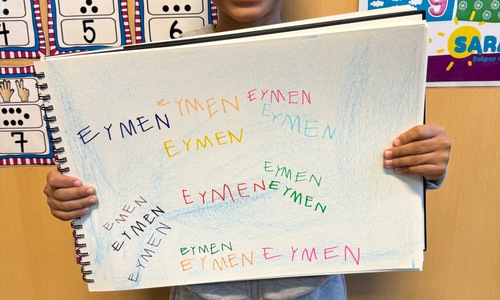 5
6
7
SARA
EYMEN
EYMEN
EYMEN
EYMEN
EYMEN
EYMEN
EYMEN
EYMEN
EMEN
EYMEN
EYMEN
EYMEN
EYMEN
EYMEN